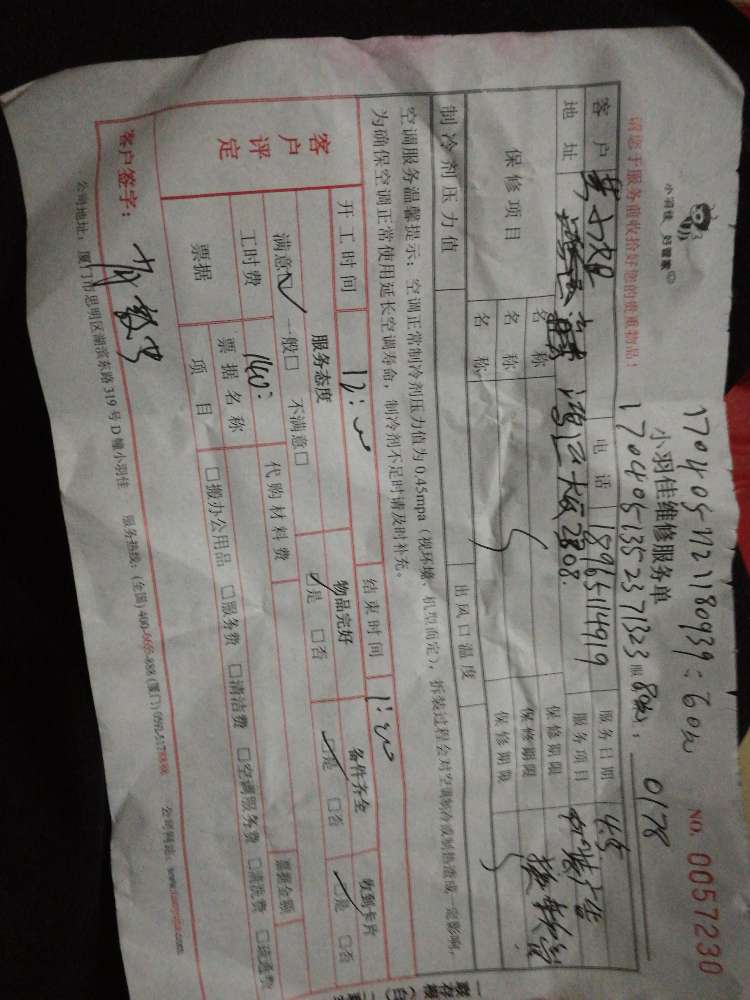 小羽佳 好管家
1704051121180939：60w
NO. 0057230
小羽佳维修服务单
17040513523 71323 服 80w：
0178
请您于服务前收拾好您的贵重物品！
客户
电话 18965114919
服务日期 4.5
地址 2808.
服务项目
保修项目
名称
保修期限
名称
保修期限
名称
保修期限
制冷剂压力值
出风口温度
空调服务温馨提示：空调正常制冷剂压力值为0.45mpa（视环境、机型而定），拆装过程会对空调制冷或制热造成一定影响，
为确保空调正常使用延长空调寿命，制冷剂不足时请及时补充。
客户评定
开工时间 12:00
结束时间 1:00
服务态度
物品完好
备件齐全
收到卡片
满意☑ 一般□ 不满意□
☑是 □否
☑是 □否
☑是 □否
工时费 140:
代购材料费
票据
票据名称
票据金额
项目
□搬办公用品 □服务费 □清洁费 □空调服务费 □清洗费
客户签字：
公司地址：厦门市思明区湖滨东路319号D幢小羽佳 服务热线：(全国)400-6655-888 公司网站：